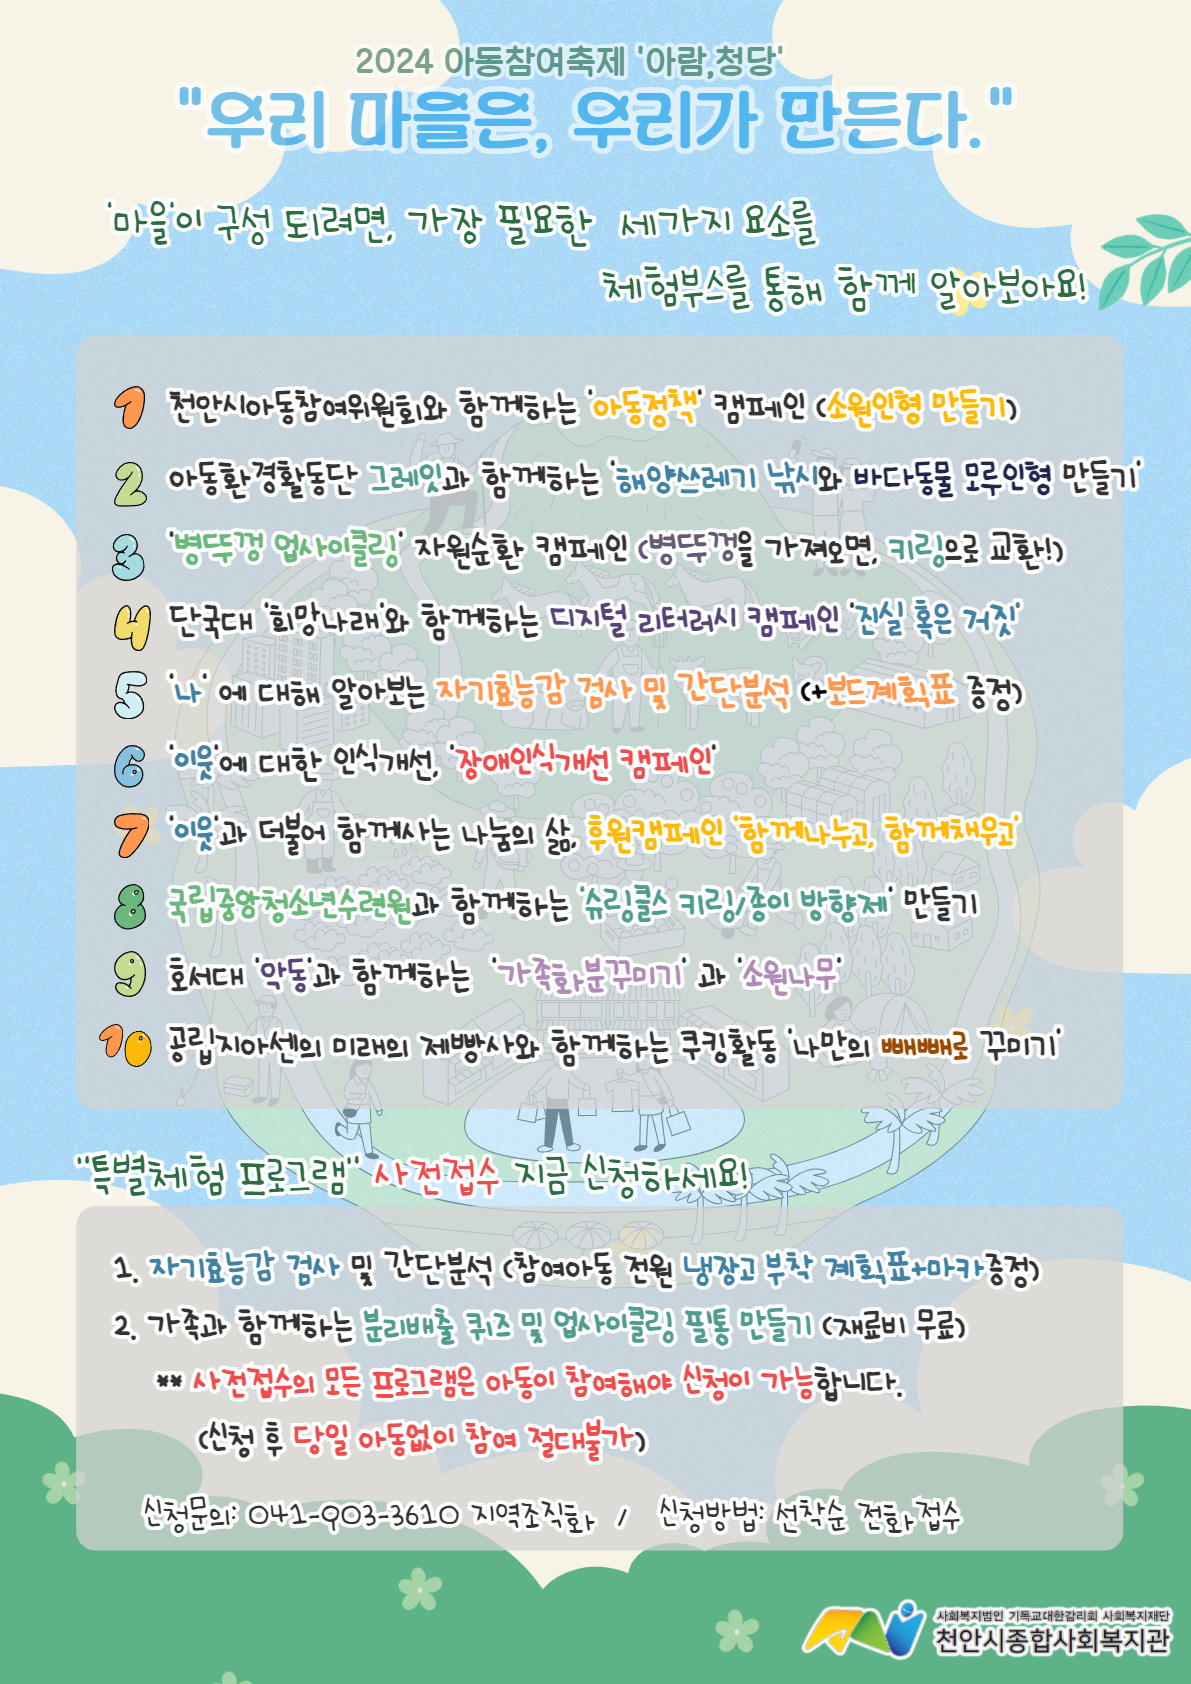 2024 아동참여축제 '아람,청당'
"우리 마을은, 우리가 만든다."
'마을'이 구성 되려면, 가장 필요한 세가지 요소를
체험부스를 통해 함께 알아보아요!
1 천안시아동참여위원회와 함께하는 '아동정책' 캠페인 (소원인형 만들기)
2 아동환경활동단 그레잇과 함께하는 '해양쓰레기 낚시와 바다동물 모루인형 만들기'
3 '병뚜껑 업사이클링' 자원순환 캠페인 (병뚜껑을 가져오면, 키링으로 교환!)
4 단국대 '희망나래'와 함께하는 디지털 리터러시 캠페인 '진실 혹은 거짓'
5 '나' 에 대해 알아보는 자기효능감 검사 및 간단분석 (+보드계획표 증정)
6 '이웃'에 대한 인식개선, '장애인식개선 캠페인'
7 '이웃'과 더불어 함께사는 나눔의 삶, 후원캠페인 '함께나누고, 함께채우고'
8 국립중앙청소년수련원과 함께하는 '슈링클스 키링/종이 방향제' 만들기
9 호서대 '악동'과 함께하는 '가족화분꾸미기' 과 '소원나무'
10 공립지아센의 미래의 제빵사와 함께하는 쿠킹활동 '나만의 빼빼로 꾸미기'
"특별체험 프로그램" 사전접수 지금 신청하세요!
1. 자기효능감 검사 및 간단분석 (참여아동 전원 냉장고 부착 계획표+마카증정)
2. 가족과 함께하는 분리배출 퀴즈 및 업사이클링 필통 만들기 (재료비 무료)
** 사전접수의 모든 프로그램은 아동이 참여해야 신청이 가능합니다.
(신청 후 당일 아동없이 참여 절대불가)
신청문의: 041-903-3610 지역조직화 / 신청방법: 선착순 전화 접수
사회복지법인 기독교대한감리회 사회복지재단
천안시종합사회복지관